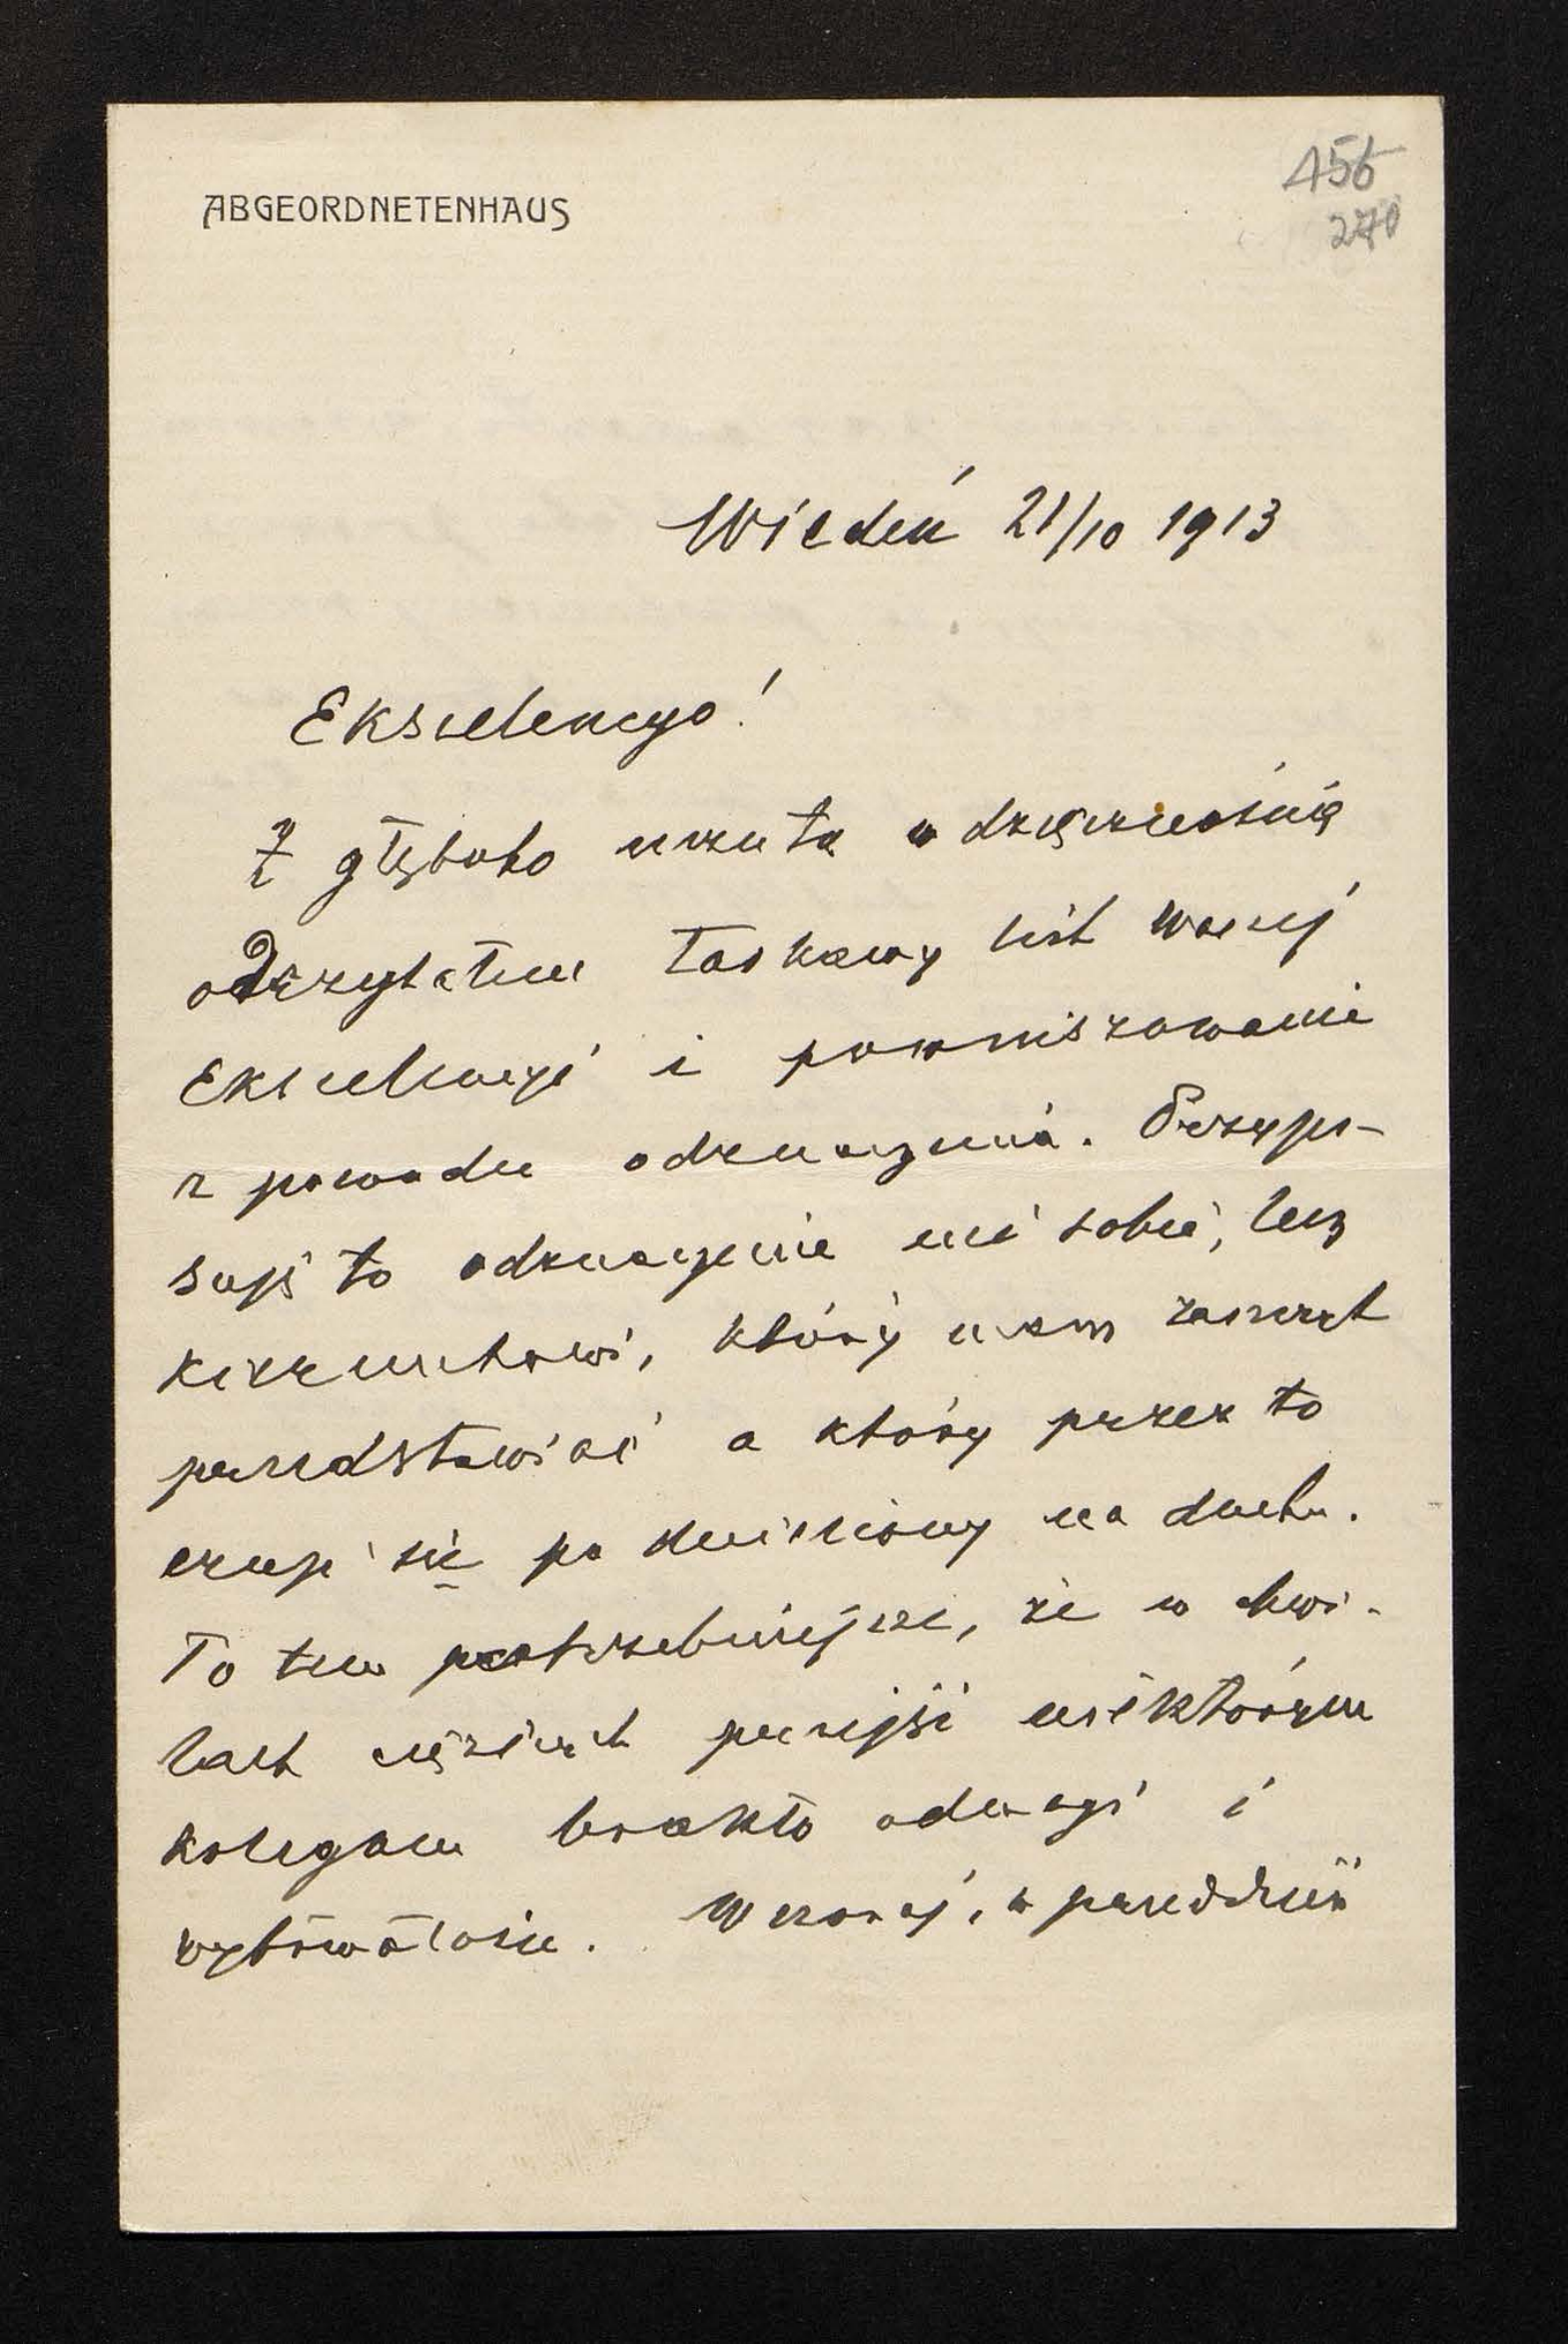 ABGEORDNETENHAUS
456
270
Wiedeń 21/10 1913
Ekscelencyo!
Z głęboko uczutą wdzięcznością
odczytałem łaskawy list Waszej
Ekscelencyi i powinszowanie
z powodu odznaczenia. Przypi-
suję to odznaczenie nie sobie, lecz
kierunkowi, który mam zaszczyt
przedstawiać a który przez to
czuje się podniesiony na duchu.
To tem potrzebniejsze, że w chwi-
lach cięższych przejść niektórym
kolegom brakło odwagi i
wytrwałości. Wczoraj, w przeddzień